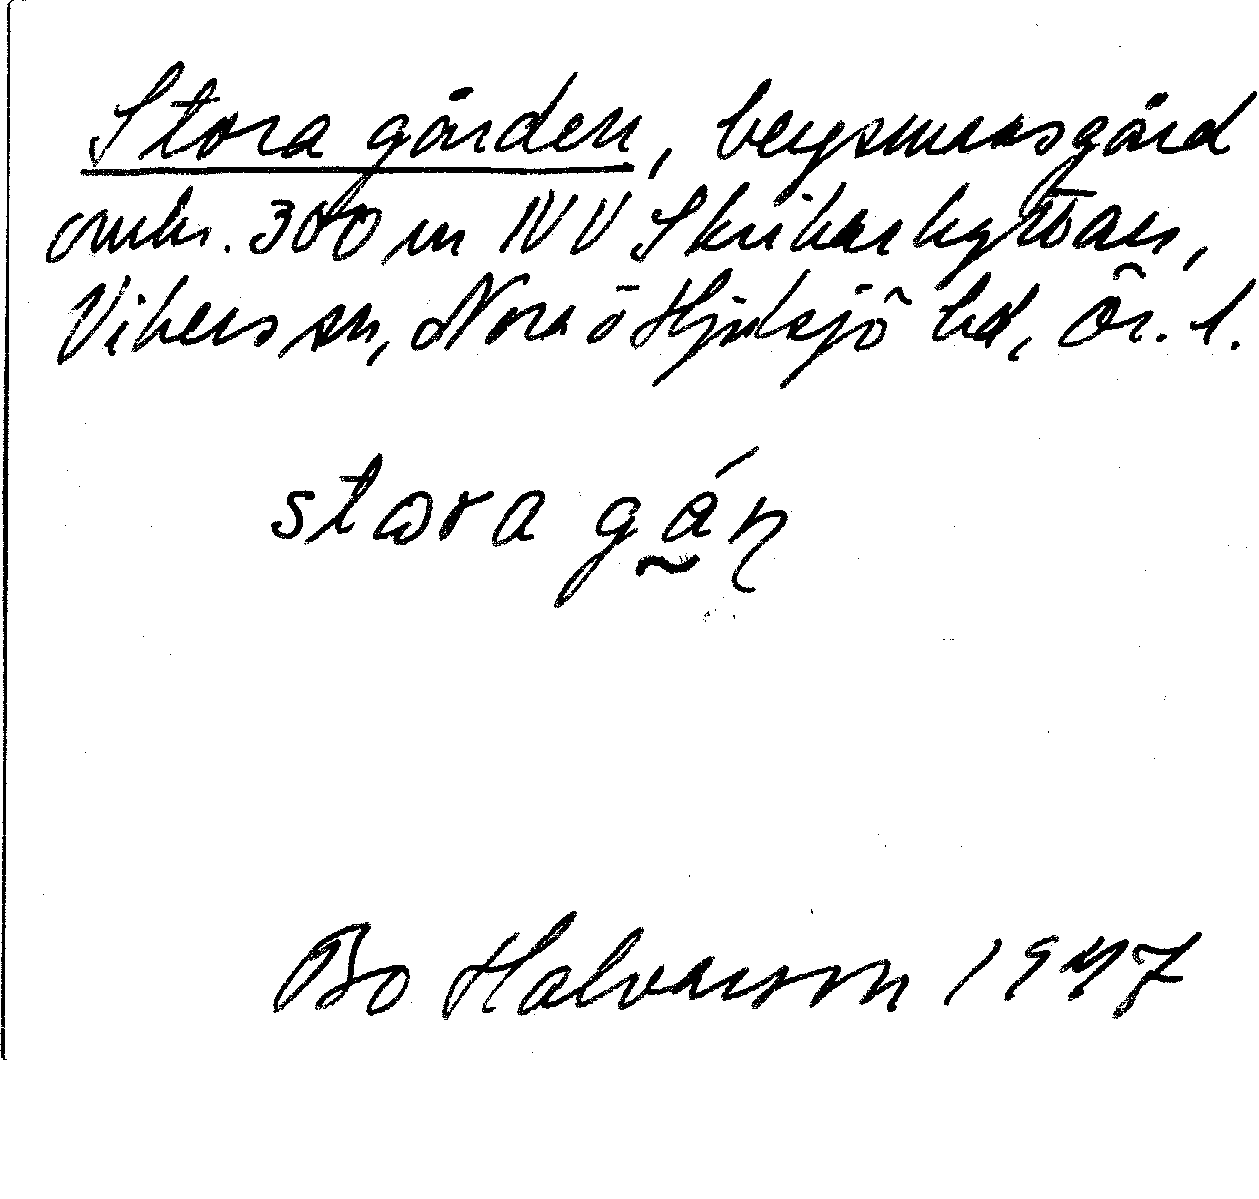 Stora gården, bergsmansgård
omkr. 300 m NV Skrikarhyttan,
Vikers sn, Nora o Hjulsjö bd, Ör. l.
stωra gán̡
Bo Halvarson 1947